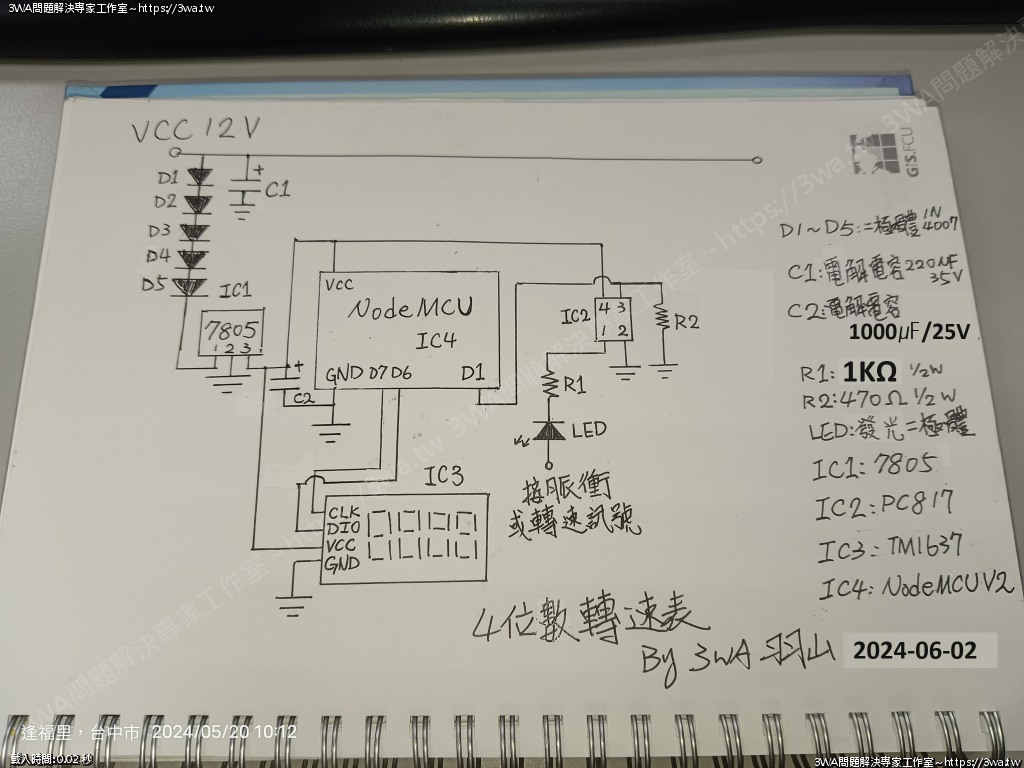 3WA問題解決專家工作室~https://3wa.tw
VCC 12V
GIS.FCU
D1
D2
D3
D4
D5
C1
IC1
7805
1 2 3
C2
VCC
NodeMCU
IC4
GND D7 D6 D1
IC2
4 3
1 2
R2
R1
LED
接脈衝
或轉速訊號
IC3
CLK
DIO
VCC
GND
D1~D5:二極體 1N4007
C1:電解電容 220μF 35V
C2:電解電容
1000μF/25V
R1: 1KΩ 1/2W
R2:470Ω 1/2W
LED:發光二極體
IC1: 7805
IC2: PC817
IC3: TM1637
IC4: NodeMCU V2
4位數轉速表
By 3WA 羽山 2024-06-02
逢福里,台中市 2024/05/20 10:12
載入時間:0.02秒
3WA問題解決專家工作室~https://3wa.tw